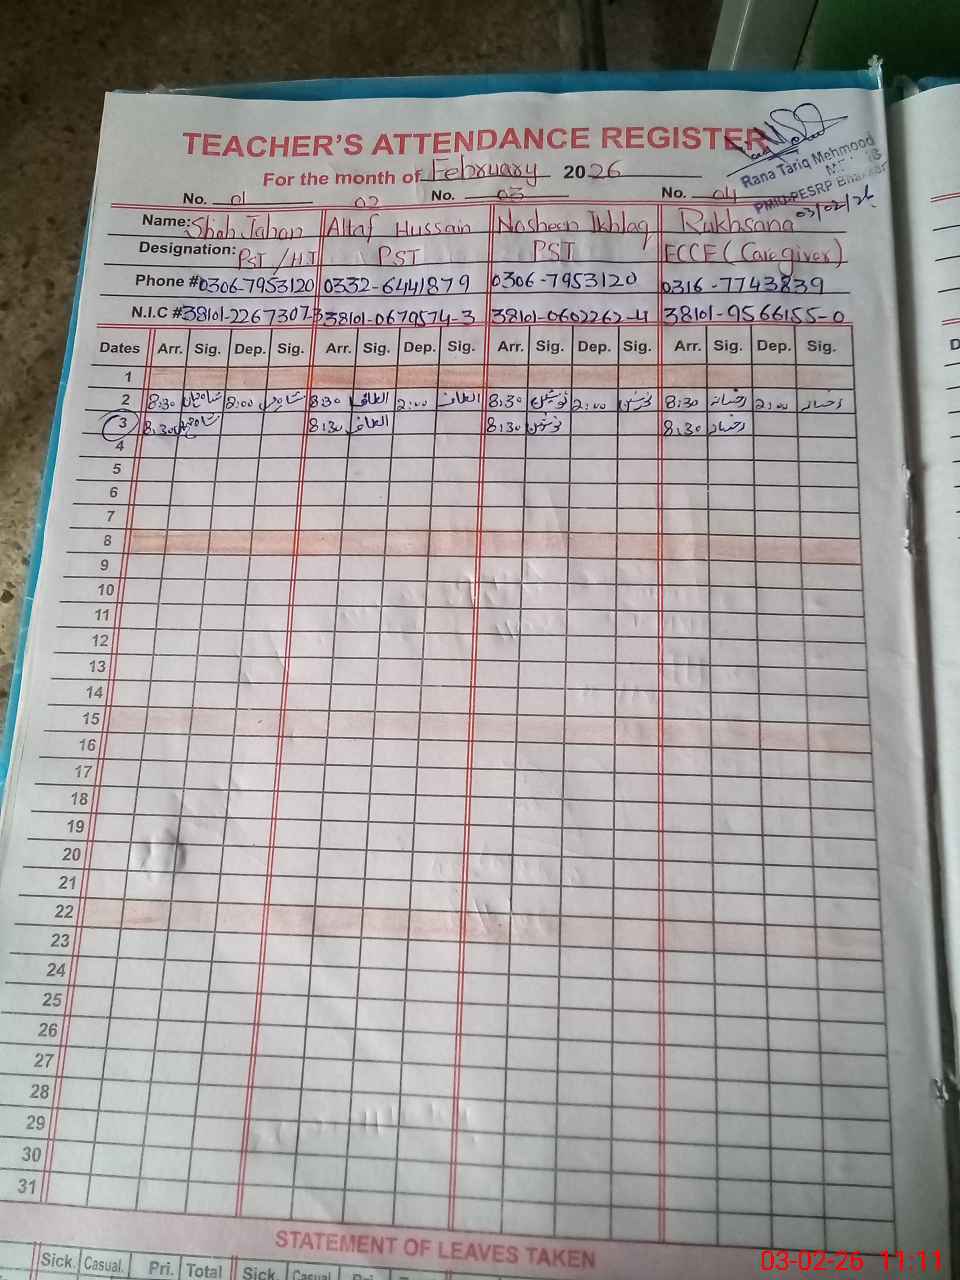 TEACHER'S ATTENDANCE REGISTER
For the month of February 2026
Rana Tariq Mehmood
PMIU-PESRP Bhakkar
03/02/26
No. 01 02 No. 03 No. 04
Name: Shah Jahan Altaf Hussain Nosheen Ikhlaq Rukhsana
Designation: PST/HT PST PST ECCE (Caregiver)
Phone # 0306-7953120 0332-6441879 0306-7953120 0316-7743839
N.I.C # 38101-2267307-3 38101-0679574-3 38101-0602262-4 38101-9566155-0
Dates Arr. Sig. Dep. Sig. Arr. Sig. Dep. Sig. Arr. Sig. Dep. Sig. Arr. Sig. Dep. Sig.
1
2 8:30 شاہ جہاں 2:00 شاہ جہاں 8:30 الطاف 2:00 الطاف 8:30 نوشین 2:00 نوشین 8:30 رخسانہ 2:00 رخسانہ
3 8:30 شاہ جہاں 8:30 الطاف 8:30 نوشین 8:30 رخسانہ
4
5
6
7
8
9
10
11
12
13
14
15
16
17
18
19
20
21
22
23
24
25
26
27
28
29
30
31
STATEMENT OF LEAVES TAKEN
Sick. Casual. Pri. Total Sick. Casual. Pri.
03-02-26 11:11